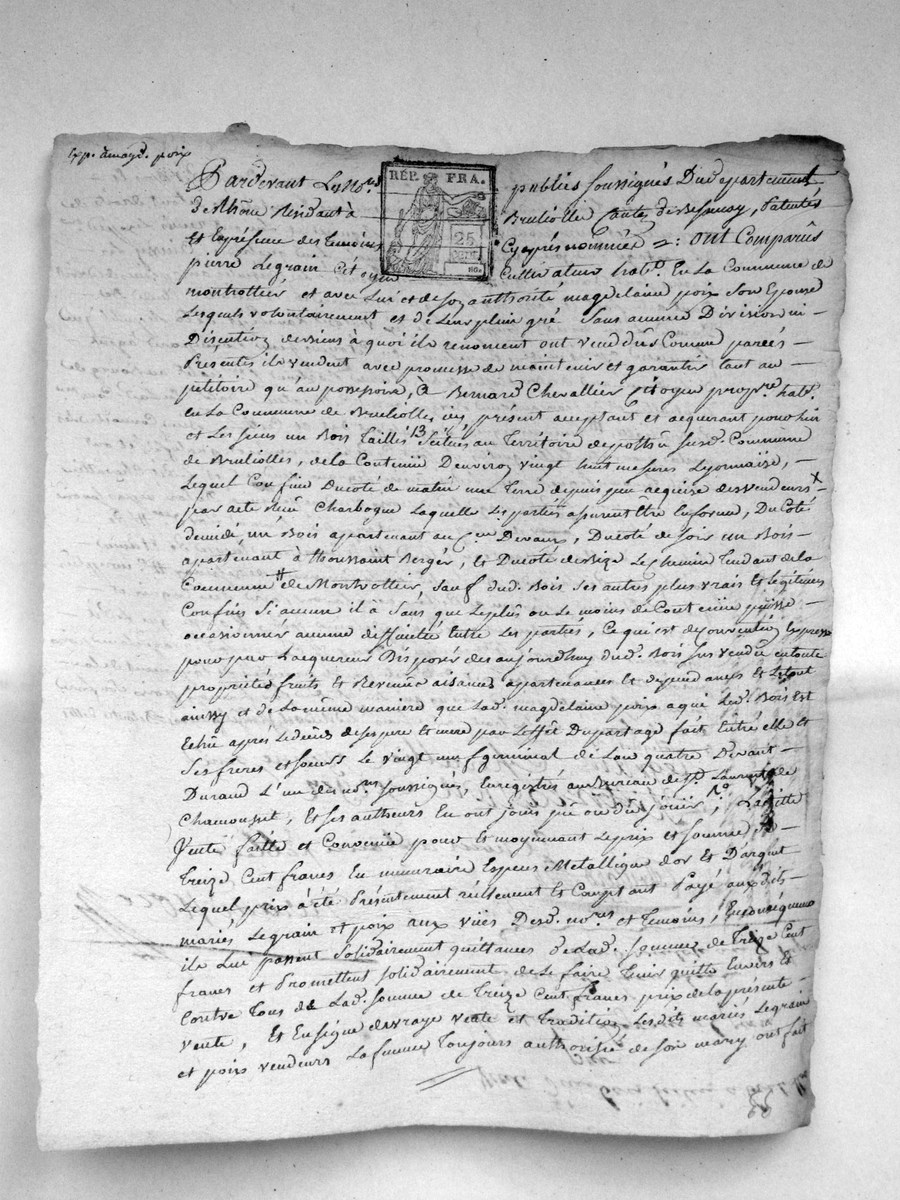 Exp. amayd. poix
Pardevant Les No.res publics soussignés Du departement
RÉP. FRA.
25
de Rhône Residant à Brulliolle Canton de Bessenay, Patentés
Et En présence des temoins Cy après nommés =: ont Comparûs
pierre Legrain Citoyen Cultivateur habt. En La Commune de
montrottier et avec Lui et de son authorité magdelaine poix Son Epouse
Lesquels volontairement et de Leur plein gré Sans aucune Division ni
Discution des biens à quoi ils renoncent ont vendûs Comme par ces
Presentes ils vendent avec promesse de maintenir et garantir tant au
petitoire qu'au possessoire, à Bernard Chevallier Citoyen propre. habt.
En La Commune de Brullioles ici présent acceptant et acquerant pour Lui
et Les siens un Bois taillis 13 Scitué au Territoire de susd. Commune
de Brulioles, de la Contenüe D'environ vingt huit mesures Lyonnaise,
Lequel Confine Du coté de matin une Terre depuis peu acquise des vendeurs x
par acte Reçu Charbogne Laquelle Les parties assurent Etre En forme, Du Coté
de midi, un Bois apartenant au Cen. Devaux, Du coté de soir un Bois
apartenant à Toussaint Berger, Et Du coté de bize Le chemin Tendant de la
Commune # de Montrottier, Sauf dud. Bois Ses autres plus vrais et Légitimes
Confins Si aucune il à Sans que Le plus ou Le moins de Contenüe puisse
occasionner aucune difficulté Entre Les parties, Ce qui est de Convention Expresse
pour par L'acquereur Disposer des aujourdhuy dud. Bois Sus vendû en toute
propriété fruits Et Revenûs aisances appartenances Et dependances Et Le tout
ainssy et de La même maniere que Lad. magdelaine poix a qui Led. Bois Est
Echû après Le decès de ses pere Et mere par L'effet Du partage fait Entre elle Et
Ses freres et soeurs Le vingt un germinal de L'an quatre Devant
Durand L'un des nores. soussignés, Enregistrés au Bureau de St. Laurent de
Chamousset, Et Ses autheurs En ont joui qu ou dû jouir ; Laditte
Vente faitte et Convenüe pour Et moyennant Le prix et Somme de
Treize Cent francs En numeraire Especes Metallique d'or Et D'argent
Lequel prix à été Présentement réellement Et Comptant Payé aux dits
mariés Legrain et poix aux vües Desd. nores. et Temoins, En consequence
ils Lui passent Solidairement quittances De Lad. Somme de Treize Cent
francs et Promettent Solidairement de Le faire Tenir quitte Envers Et
Contre Tous de Lad. Somme de Treize Cent francs prix de la présente
vente, Et En signe de vraye vente et Tradition Lesdits mariés Legrain
et poix vendeurs La femme Toujours authorisée de son mary ont fait